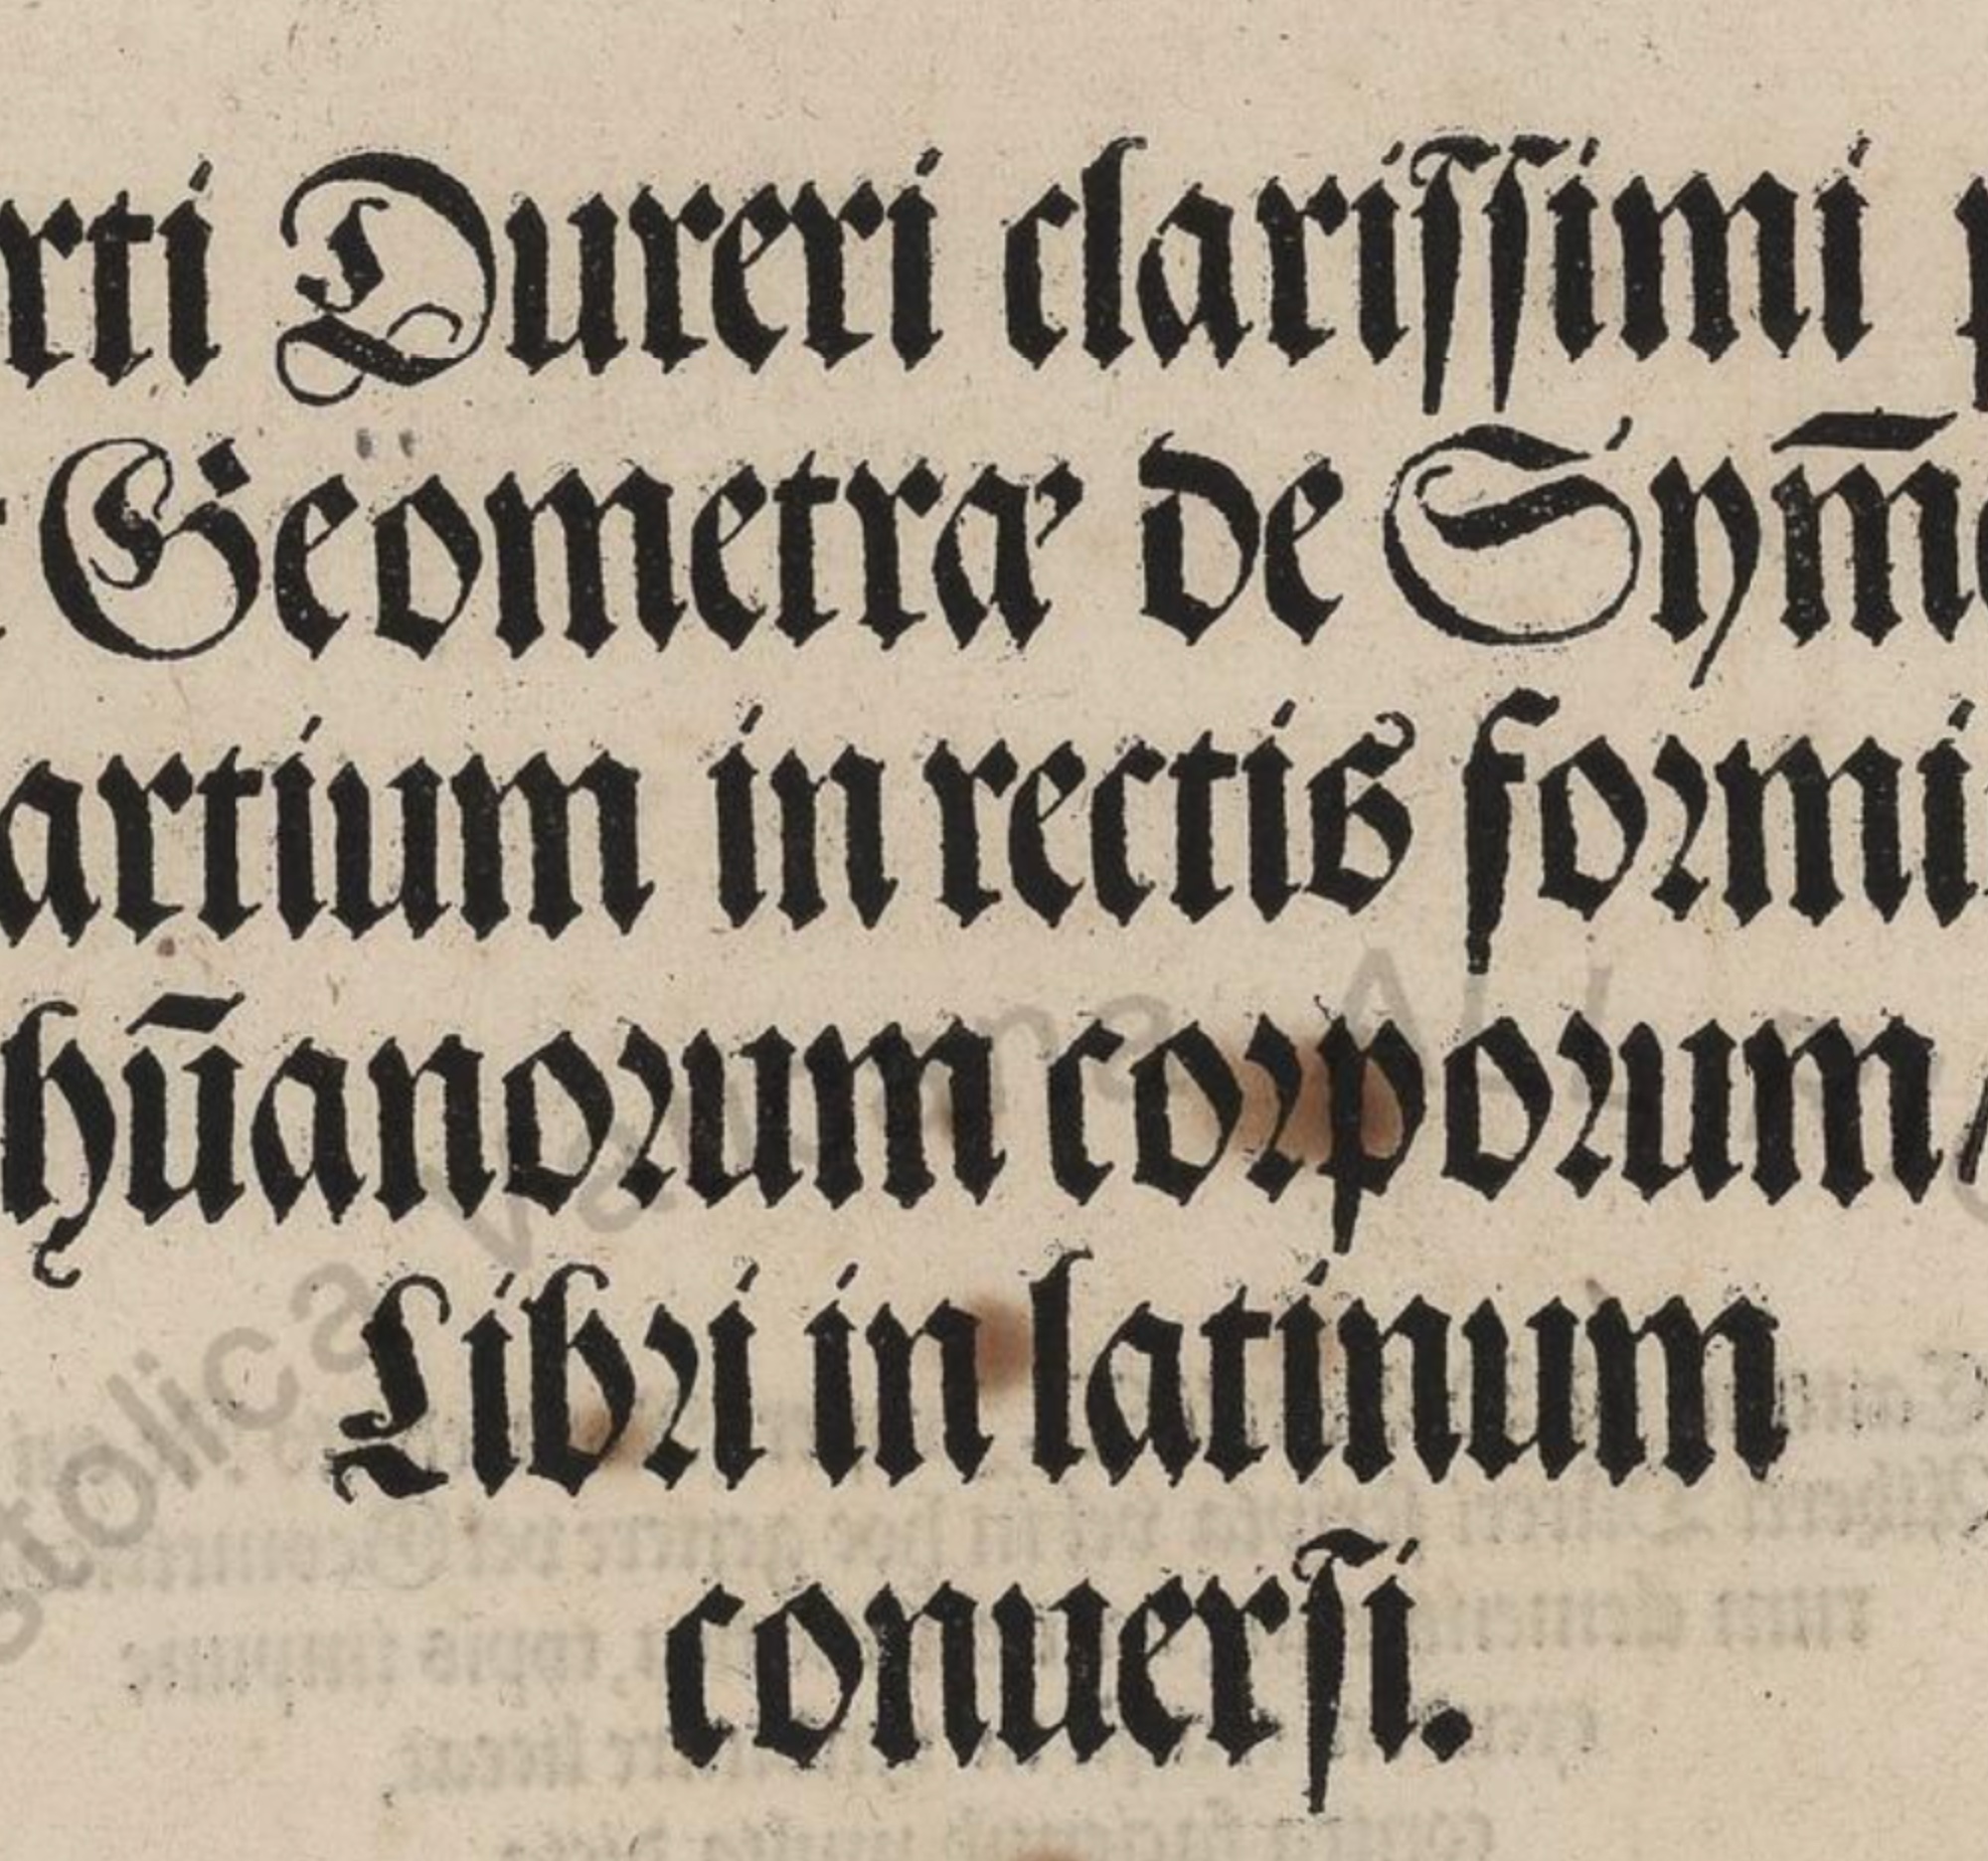 rti Dureri clariſſimi p
Geometræ de Sym̄e
artium in rectis formi
hūanorum corporum/
Libri in latinum
conuerſi.